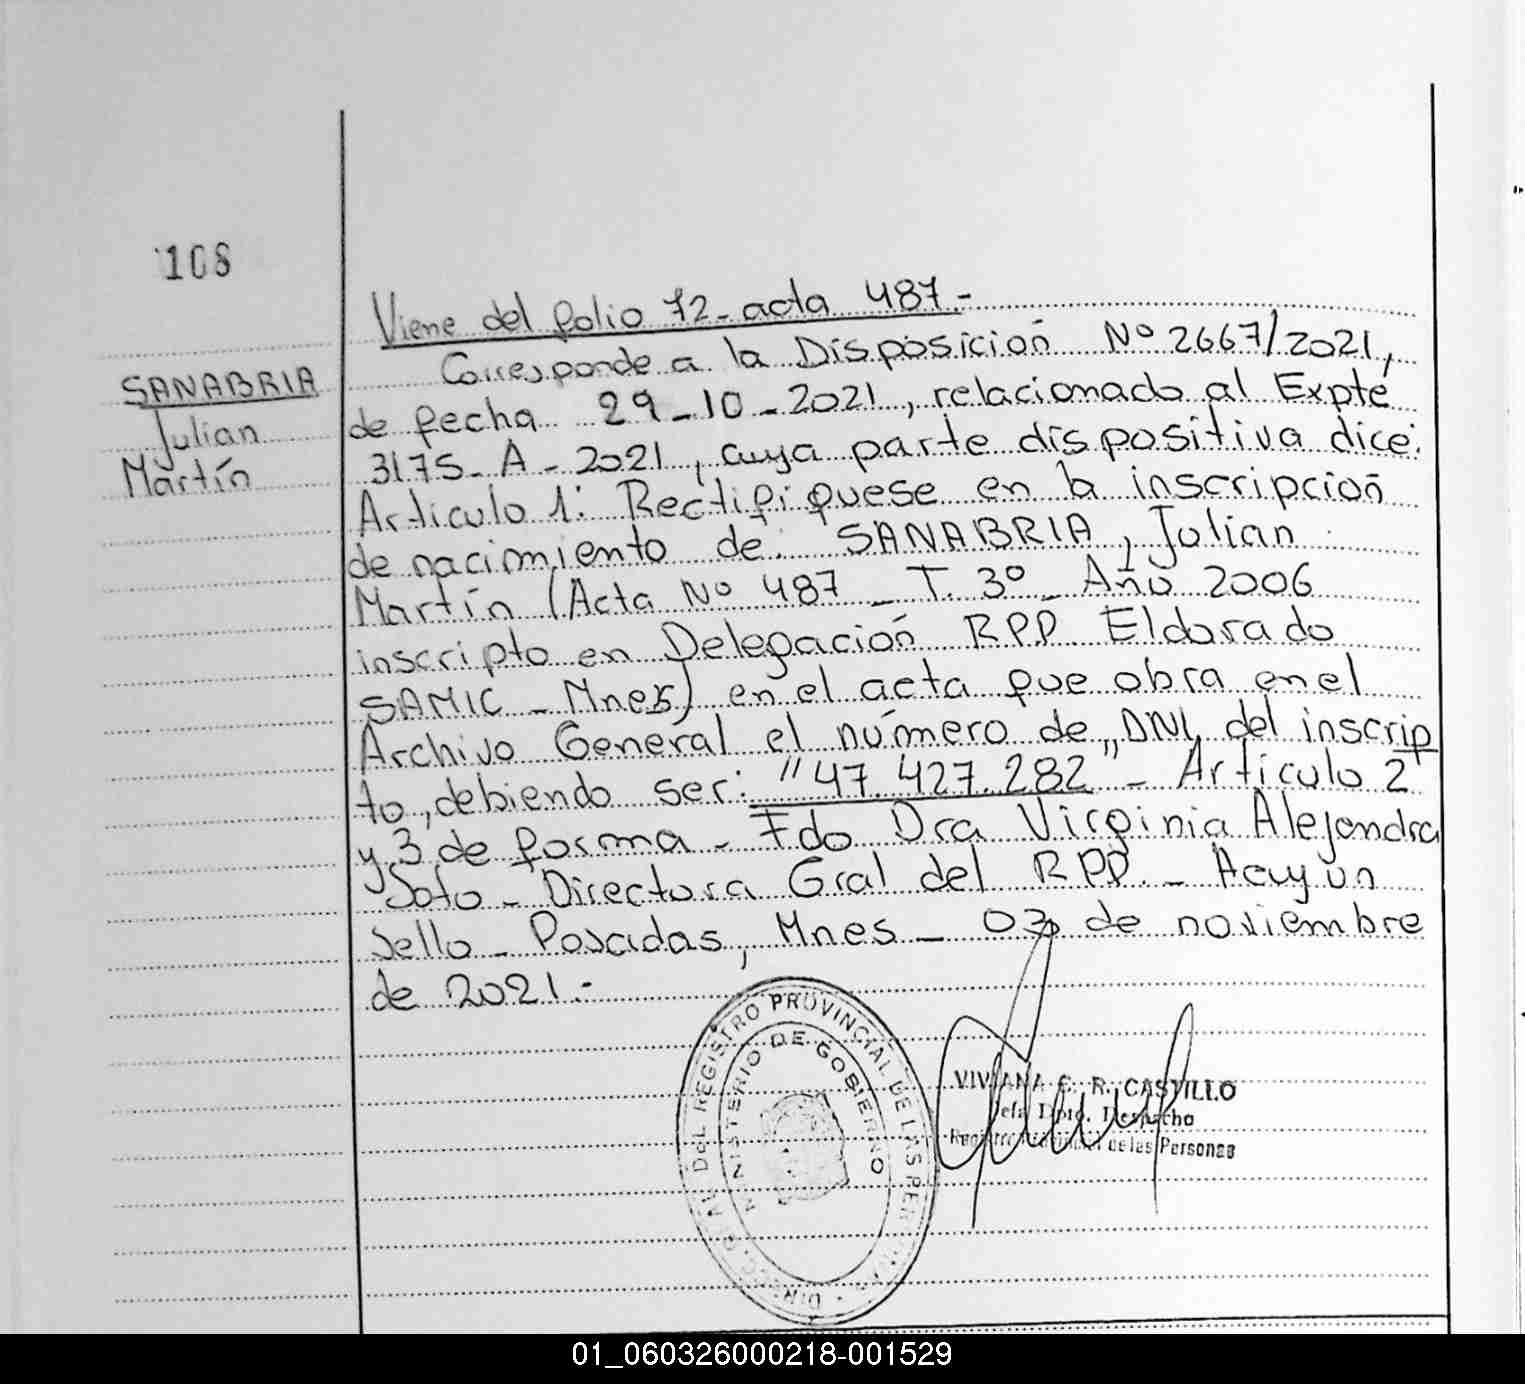 108
SANABRIA
Julian
Martín
Viene del folio 72- acta 487.-
Corresponde a la Disposición Nº 2667/2021,
de fecha 29-10-2021, relacionado al Expte
3175-A-2021, cuya parte dispositiva dice:
Articulo 1: Rectifiquese en la inscripción
de nacimiento de: SANABRIA, Julian
Martín (Acta Nº 487 - T. 3º - Año 2006
inscripto en Delegación RPP Eldorado
SAMIC - Mnes) en el acta que obra en el
Archivo General el número de DNI del inscrip
to, debiendo ser: "47.427.282" - Artículo 2
y 3 de forma - Fdo Dra Virginia Alejandra
Soto - Directora Gral del RPP. - Hay un
sello - Posadas, Mnes - 03 de noviembre
de 2021.-
DIRECC. GRAL DEL REGISTRO PROVINCIAL DE LAS PERSONAS
MINISTERIO DE GOBIERNO
VIVIANA E. R. CASTILLO
Jefa Dpto. Despacho
Registro Provincial de las Personas
01_060326000218-001529